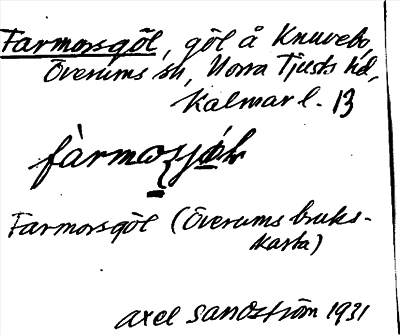 Farmorsgöl, göl å Knuvebo,
Överums sn, Norra Tjusts hd,
Kalmar l. 13
Farmorsgöl (Överums bruks-
karta)
Axel Sandström 1931